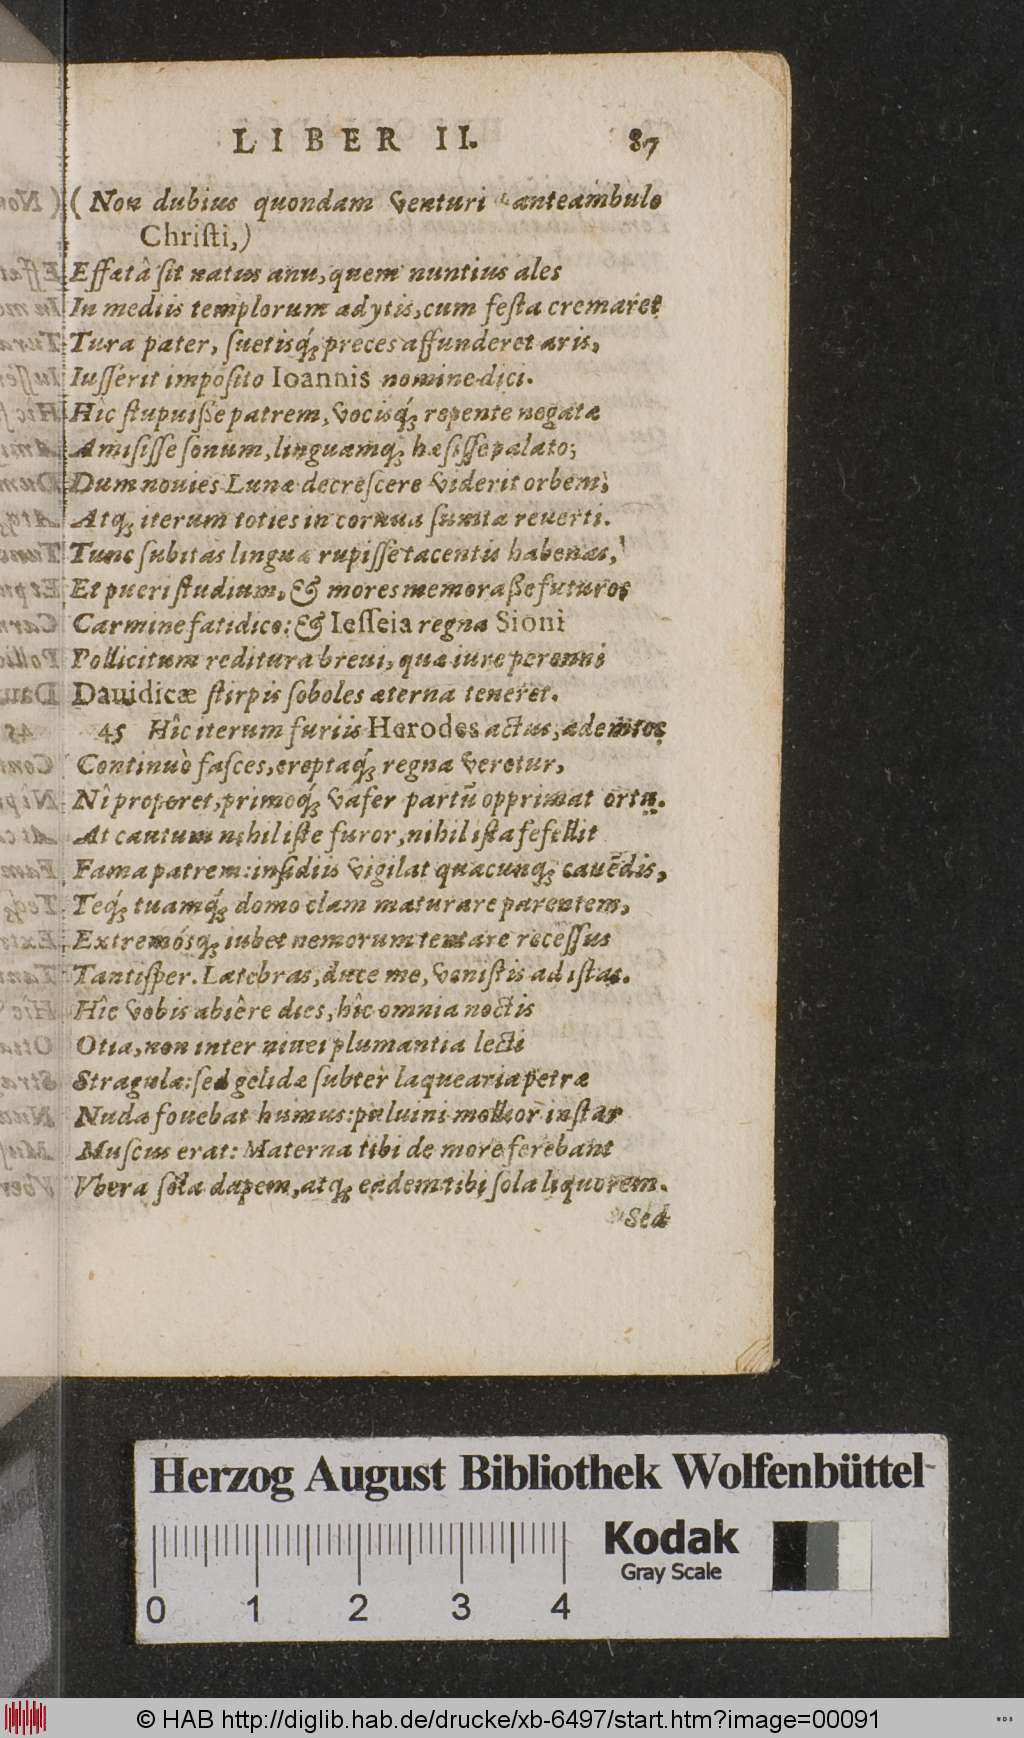 LIBER II. 87
(Non dubius quondam venturi anteambulo
Christi,)
Effœtâ sit natus anu, quem nuntius ales
In mediis templorum adytis, cum festa cremaret
Tura pater, suetisq́; preces affunderet aris,
Iusserit imposito Ioannis nomine dici.
Hic stupuisse patrem, vocisq́; repente negatæ
Amisisse sonum, linguamq; hæsisse palato;
Dum novies Lunæ decrescere viderit orbem,
Atq; iterum toties in cornua sumta reverti.
Tunc subitas linguæ rupisse tacentis habenas,
Et pueri studium, & mores memorasse futuros
Carmine fatidico: & Iesseia regna Sioni
Pollicitum reditura brevi, quæ iure perenni
Dauidicæ stirpis soboles æterna teneret.
45 Hîc iterum furiis Herodes actus, ademtos
Continuò fasces, ereptaq́; regna veretur,
Nî properet, primoq́; vafer partũ opprimat ortu.
At cautum nihil iste furor, nihil ista fefellit
Fama patrem: insidiis vigilat quacunq; cavẽdis,
Teq́; tuamq́; domo clam maturare parentem,
Extremósq; iubet nemorum tentare recessus
Tantisper. Latebras, duce me, venistis ad istas.
Hîc vobis abiêre dies, hîc omnia noctis
Otia, non inter nivei plumantia lecti
Stragula: sed gelidæ subter laquearia petræ
Nuda fouebat humus: puluini mollior instar
Muscus erat: Materna tibi de more ferebant
Vbera sola dapem, atq; eadem tibi sola liquorem.
Sed
Herzog August Bibliothek Wolfenbüttel
Kodak
Gray Scale
0 1 2 3 4
© HAB http://diglib.hab.de/drucke/xb-6497/start.htm?image=00091